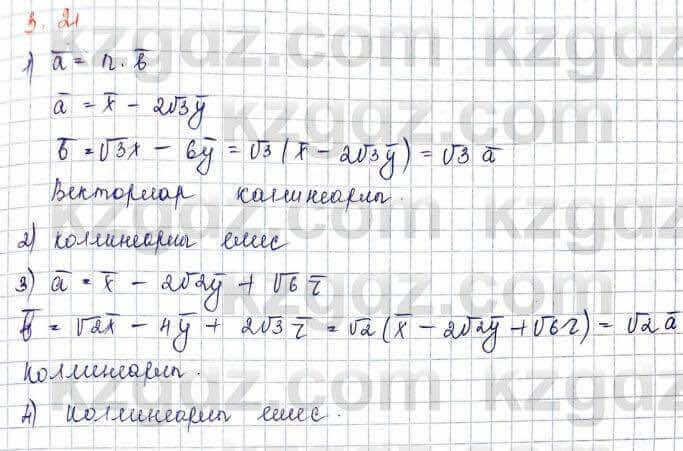 3. 21
1) a̅ = n · b̅
a̅ = x̅ - 2√3y̅
b̅ = √3x - 6y̅ = √3(x̅ - 2√3y̅) = √3 a̅
Векторлар коллинеарлы.
2) коллинеарлы емес
3) a̅ = x̅ - 2√2y̅ + √6 z̅
b̅ = √2x̅ - 4y̅ + 2√3 z̅ = √2(x̅ - 2√2y̅ + √6z) = √2 a̅
Коллинеарлы.
4) Коллинеарлы емес.
kzgdz.com